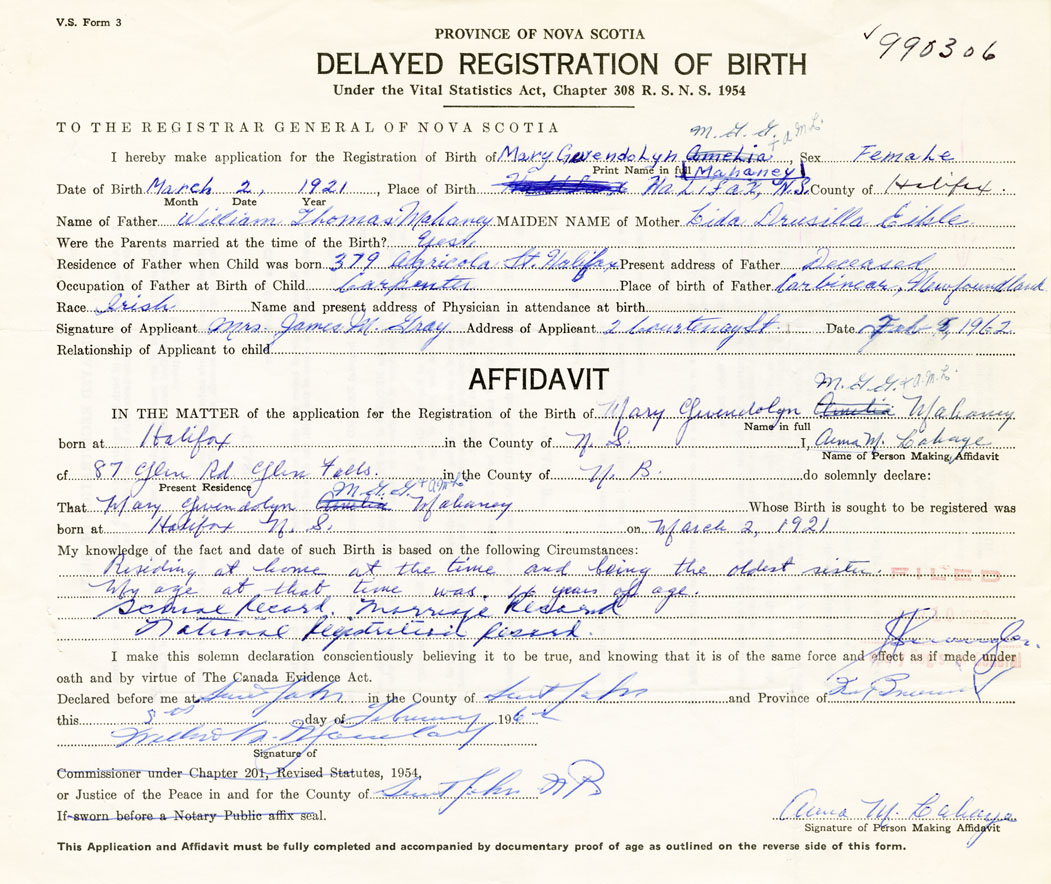 V.S. Form 3
PROVINCE OF NOVA SCOTIA
✓990306
DELAYED REGISTRATION OF BIRTH
Under the Vital Statistics Act, Chapter 308 R. S. N. S. 1954
TO THE REGISTRAR GENERAL OF NOVA SCOTIA
M. G. G. + a M L
I hereby make application for the Registration of Birth of Mary Gwendolyn Amelia, Sex Female
Print Name in full Mahaney
Date of Birth March 2, 1921, Place of Birth Halifax, N.S. County of Halifax.
Month Date Year
Name of Father William Thomas Mahaney MAIDEN NAME of Mother Lida Drusilla Eible
Were the Parents married at the time of the Birth? Yes.
Residence of Father when Child was born 379 Agricola St. Halifax Present address of Father Deceased
Occupation of Father at Birth of Child Carpenter Place of birth of Father Carbinear, Newfoundland
Race Irish Name and present address of Physician in attendance at birth
Signature of Applicant Mrs. James M. Gray Address of Applicant 2 Courtenay St. Date Feb 5, 1962
Relationship of Applicant to child
AFFIDAVIT
M. G. G. + a. M. L.
IN THE MATTER of the application for the Registration of the Birth of Mary Gwendolyn Amelia Mahaney
Name in full
born at Halifax in the County of N. S. I, Anna M. Lahaye
Name of Person Making Affidavit
of 87 Glen Rd Glen Falls. in the County of N. B. do solemnly declare:
Present Residence
M. G. G. + a M L
That Mary Gwendolyn Amelia Mahaney Whose Birth is sought to be registered was
born at Halifax N. S. on March 2, 1921
My knowledge of the fact and date of such Birth is based on the following Circumstances:
Residing at home at the time and being the oldest sister.
FILED
My age at that time was 16 years of age.
School Record. Marriage Record
National Registration Record.
I make this solemn declaration conscientiously believing it to be true, and knowing that it is of the same force and effect as if made under
oath and by virtue of The Canada Evidence Act.
Declared before me at Saint John in the County of Saint John and Province of New Brunswick
this 8 day of February 1962
Signature of
Commissioner under Chapter 201, Revised Statutes, 1954,
or Justice of the Peace in and for the County of Saint John N B
If sworn before a Notary Public affix seal.
Anna M. Lahaye
Signature of Person Making Affidavit
This Application and Affidavit must be fully completed and accompanied by documentary proof of age as outlined on the reverse side of this form.